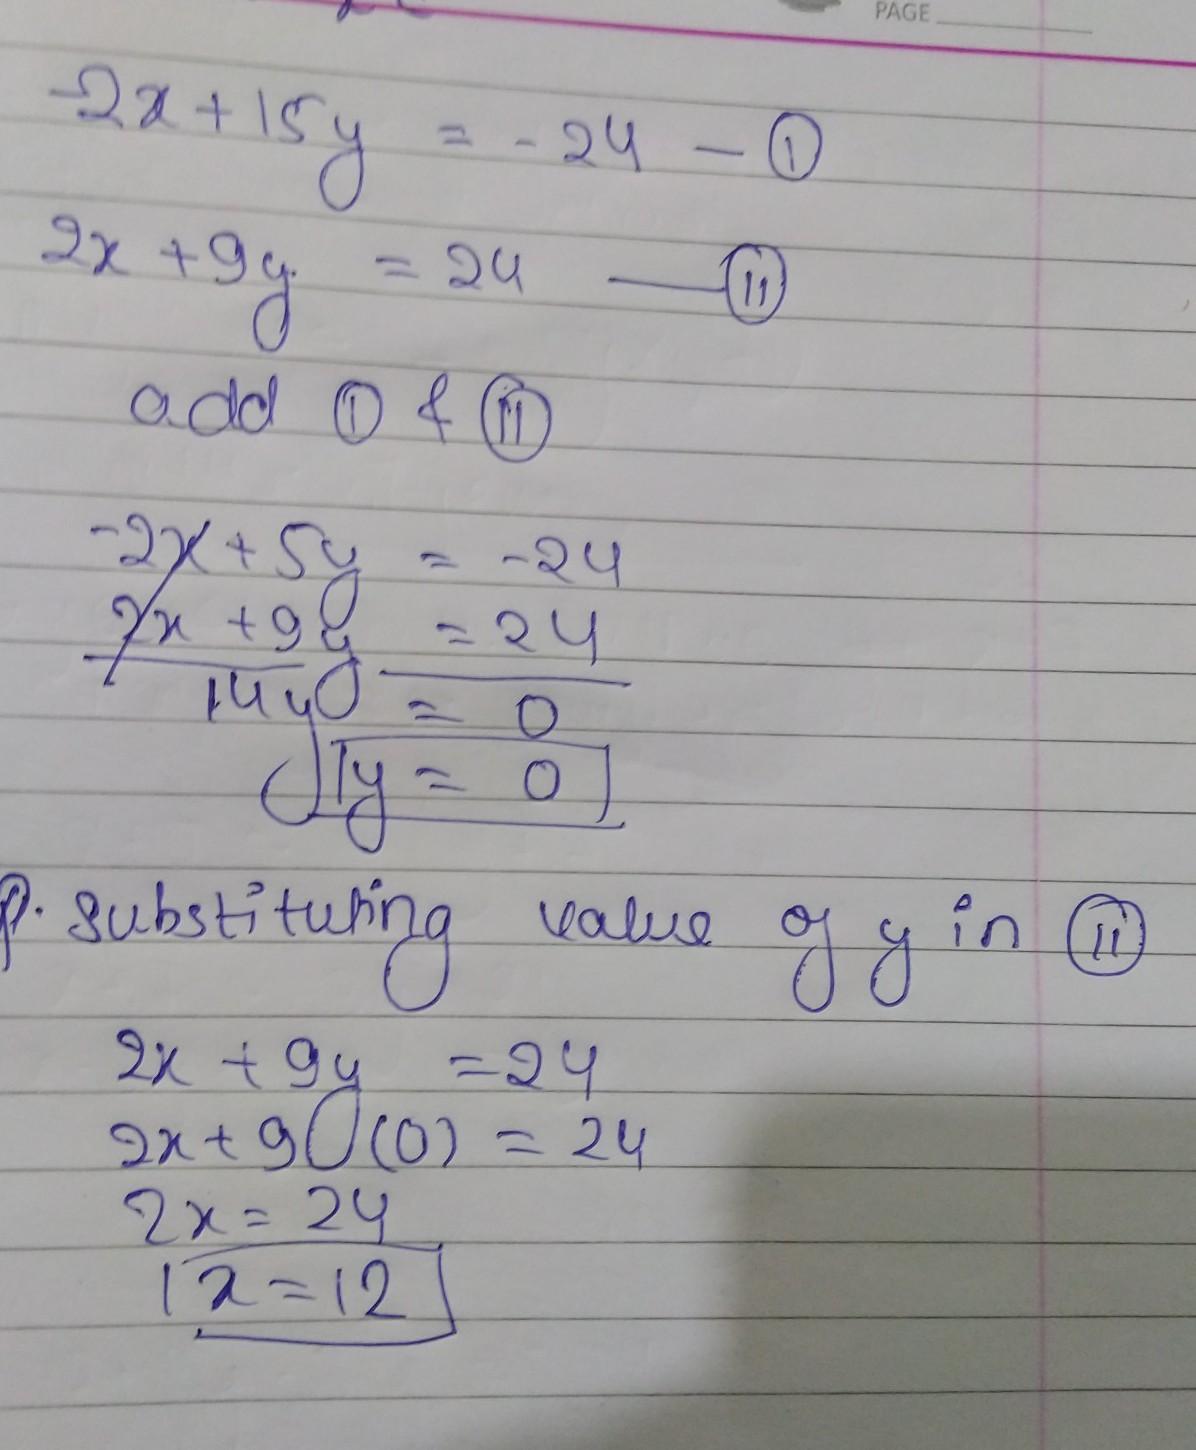 PAGE
-2x + 15y = -24 — (I)
2x + 9y = 24 — (II)
add (I) & (II)
-2x + 5y = -24
2x + 9y = 24
14y = 0
y = 0
substituting value of y in (II)
2x + 9y = 24
2x + 9(0) = 24
2x = 24
x = 12